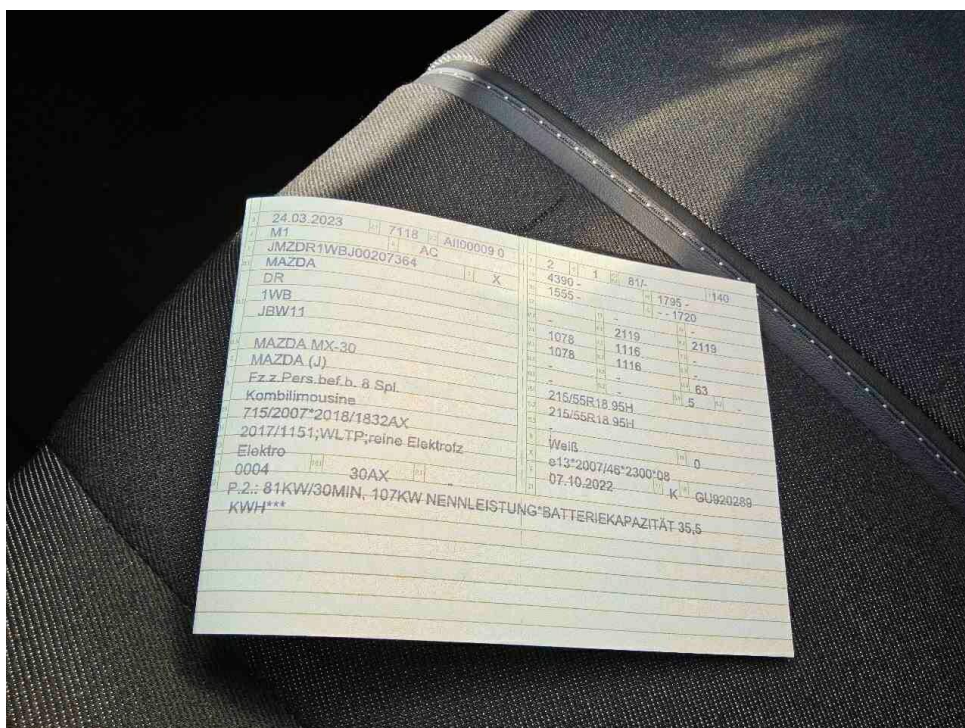 24.03.2023 7118 AII00009 0
M1 AC
JMZDR1WBJ00207364 X
MAZDA
DR
1WB
JBW11
MAZDA MX-30
MAZDA (J)
Fz.z.Pers.bef.b. 8 Spl.
Kombilimousine
715/2007*2018/1832AX
2017/1151;WLTP;reine Elektrofz
Elektro
0004 30AX -
2 1 81/-
140
4390 - 1795 -
1555 - - - 1720
- - -
1078 2119 2119
1078 1116 -
- 1116 -
- - 63
215/55R18 95H 5 -
215/55R18 95H
-
Weiß 0
e13*2007/46*2300*08
07.10.2022 K GU920289
P.2.: 81KW/30MIN, 107KW NENNLEISTUNG*BATTERIEKAPAZITÄT 35,5
KWH***